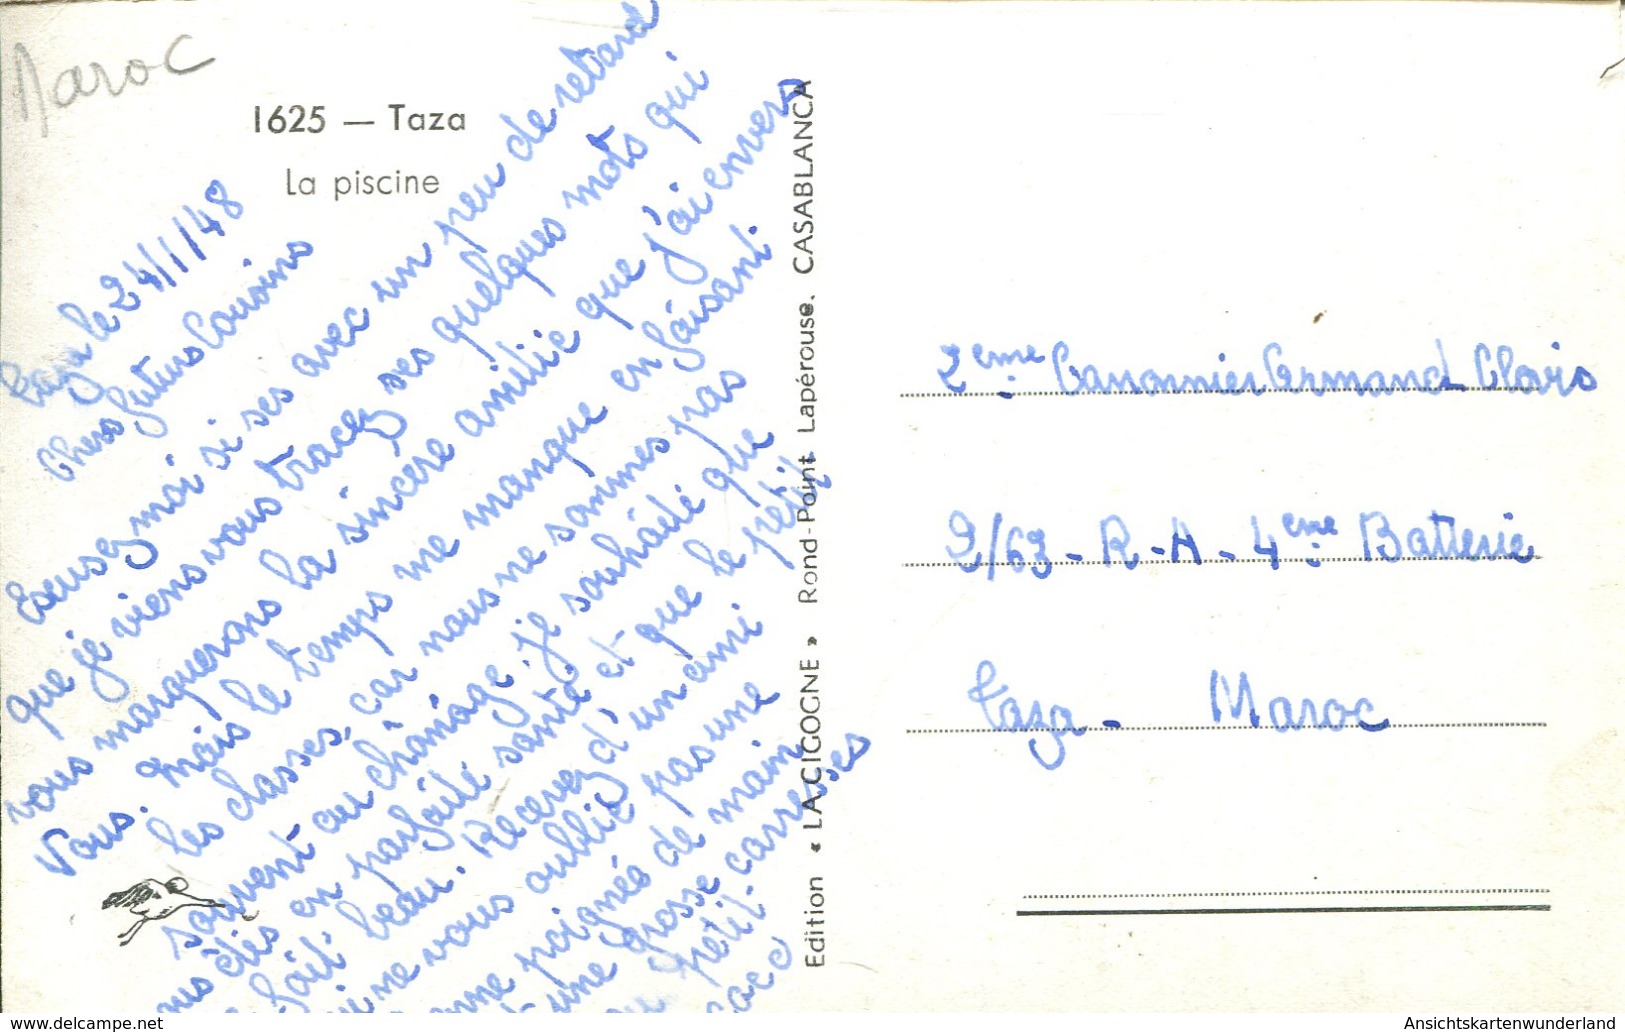 Maroc
1625 — Taza
La piscine
Taza le 24/1/48
Chers futurs Cousins
Excusez moi si ses avec un peu de retard
que je viens vous tracez ses quelques mots qui
vous marquerons la sincère amitié que j'ai envers
Vous. Mais le temps me manque en faisant
les classes, car nous ne sommes pas
souvent au chômage. je souhaité que
vous étés en parfaité santé et que le petit
fait beau. Recevez d'un ami
qui ne vous oublié pas une
bonne poignéé de main
et une grosse carresses
au petit
Edition « LA CIGOGNE » Rond-Point Lapérouse. CASABLANCA
2eme Canonnier Armand Clovis
2/63 - R - A - 4eme Batterie
Taza - Maroc
Ansichtskartenwunderland